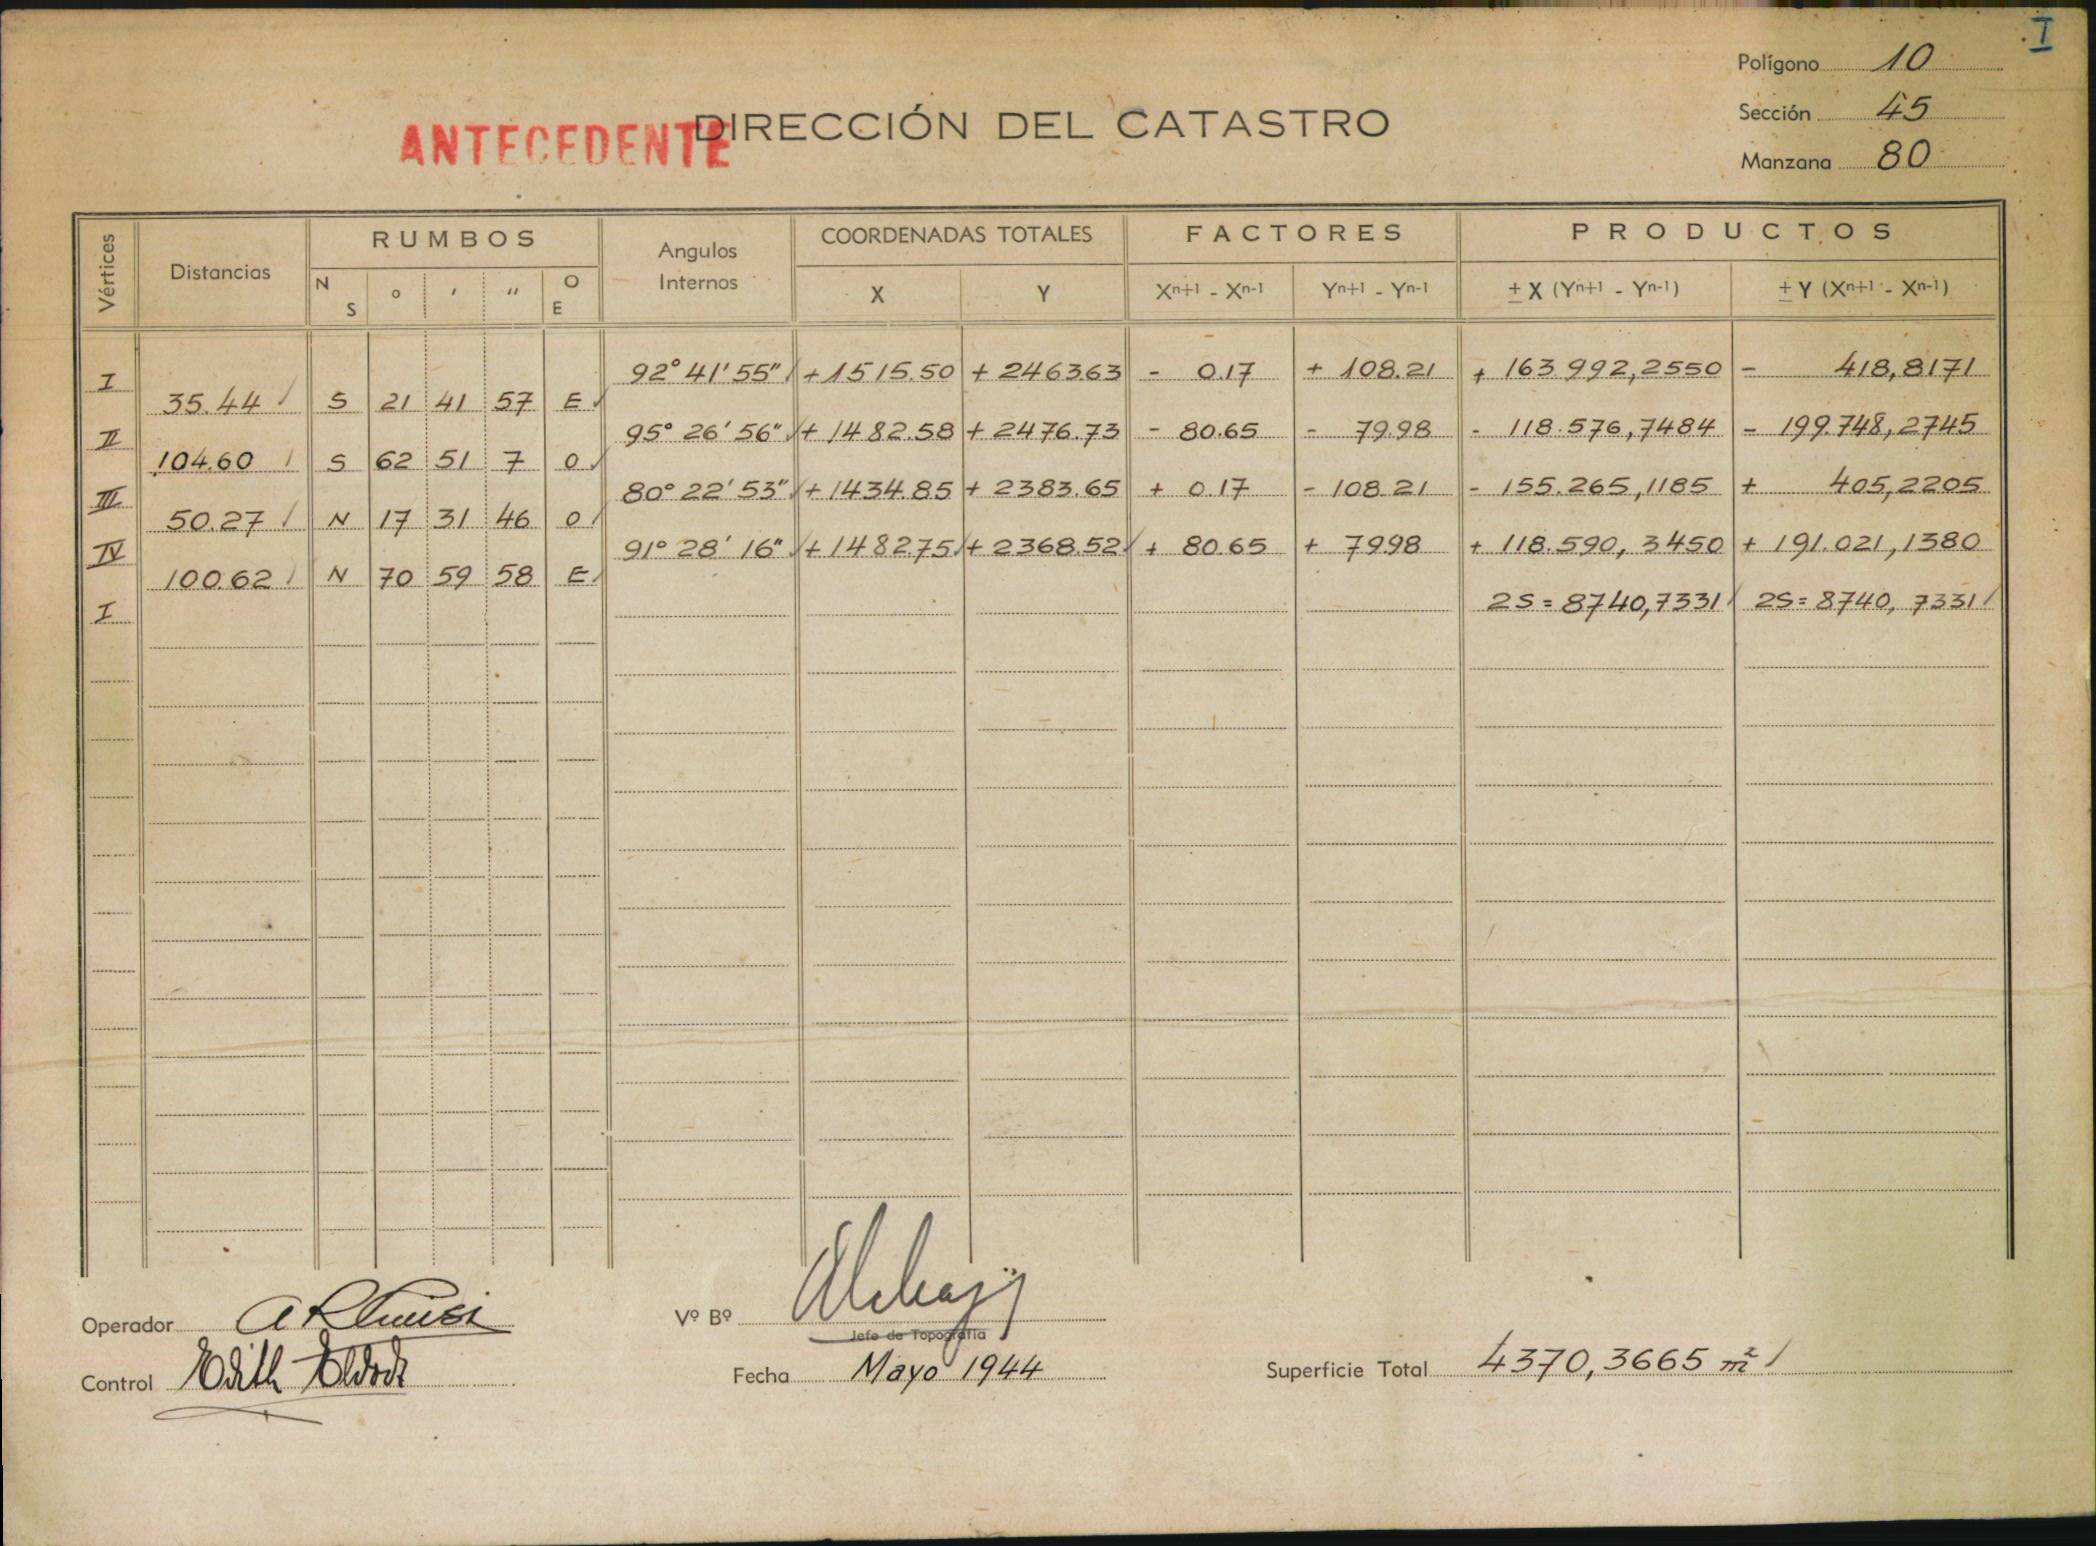 I
Polígono 10
Sección 45
Manzana 80
ANTECEDENTE
DIRECCIÓN DEL CATASTRO
Vértices Distancias RUMBOS Angulos Internos COORDENADAS TOTALES FACTORES PRODUCTOS
N S ° ' " O E X Y Xn+1 - Xn-1 Yn+1 - Yn-1 ± X (Yn+1 - Yn-1) ± Y (Xn+1 - Xn-1)
I 92° 41' 55" + 1515.50 + 2463.63 - 0.17 + 108.21 + 163.992,2550 - 418,8171
35.44 S 21 41 57 E
II 95° 26' 56" + 1482.58 + 2476.73 - 80.65 - 79.98 - 118.576,7484 - 199.748,2745
104.60 S 62 51 7 O
III 80° 22' 53" + 1434.85 + 2383.65 + 0.17 - 108.21 - 155.265,1185 + 405,2205
50.27 N 17 31 46 O
IV 91° 28' 16" + 1482.75 + 2368.52 + 80.65 + 79.98 + 118.590,3450 + 191.021,1380
100.62 N 70 59 58 E
I 2S = 8740,7331 2S = 8740,7331
Operador
Vº Bº
Jefe de Topografía
Control Edith
Fecha Mayo 1944
Superficie Total 4370,3665 m²